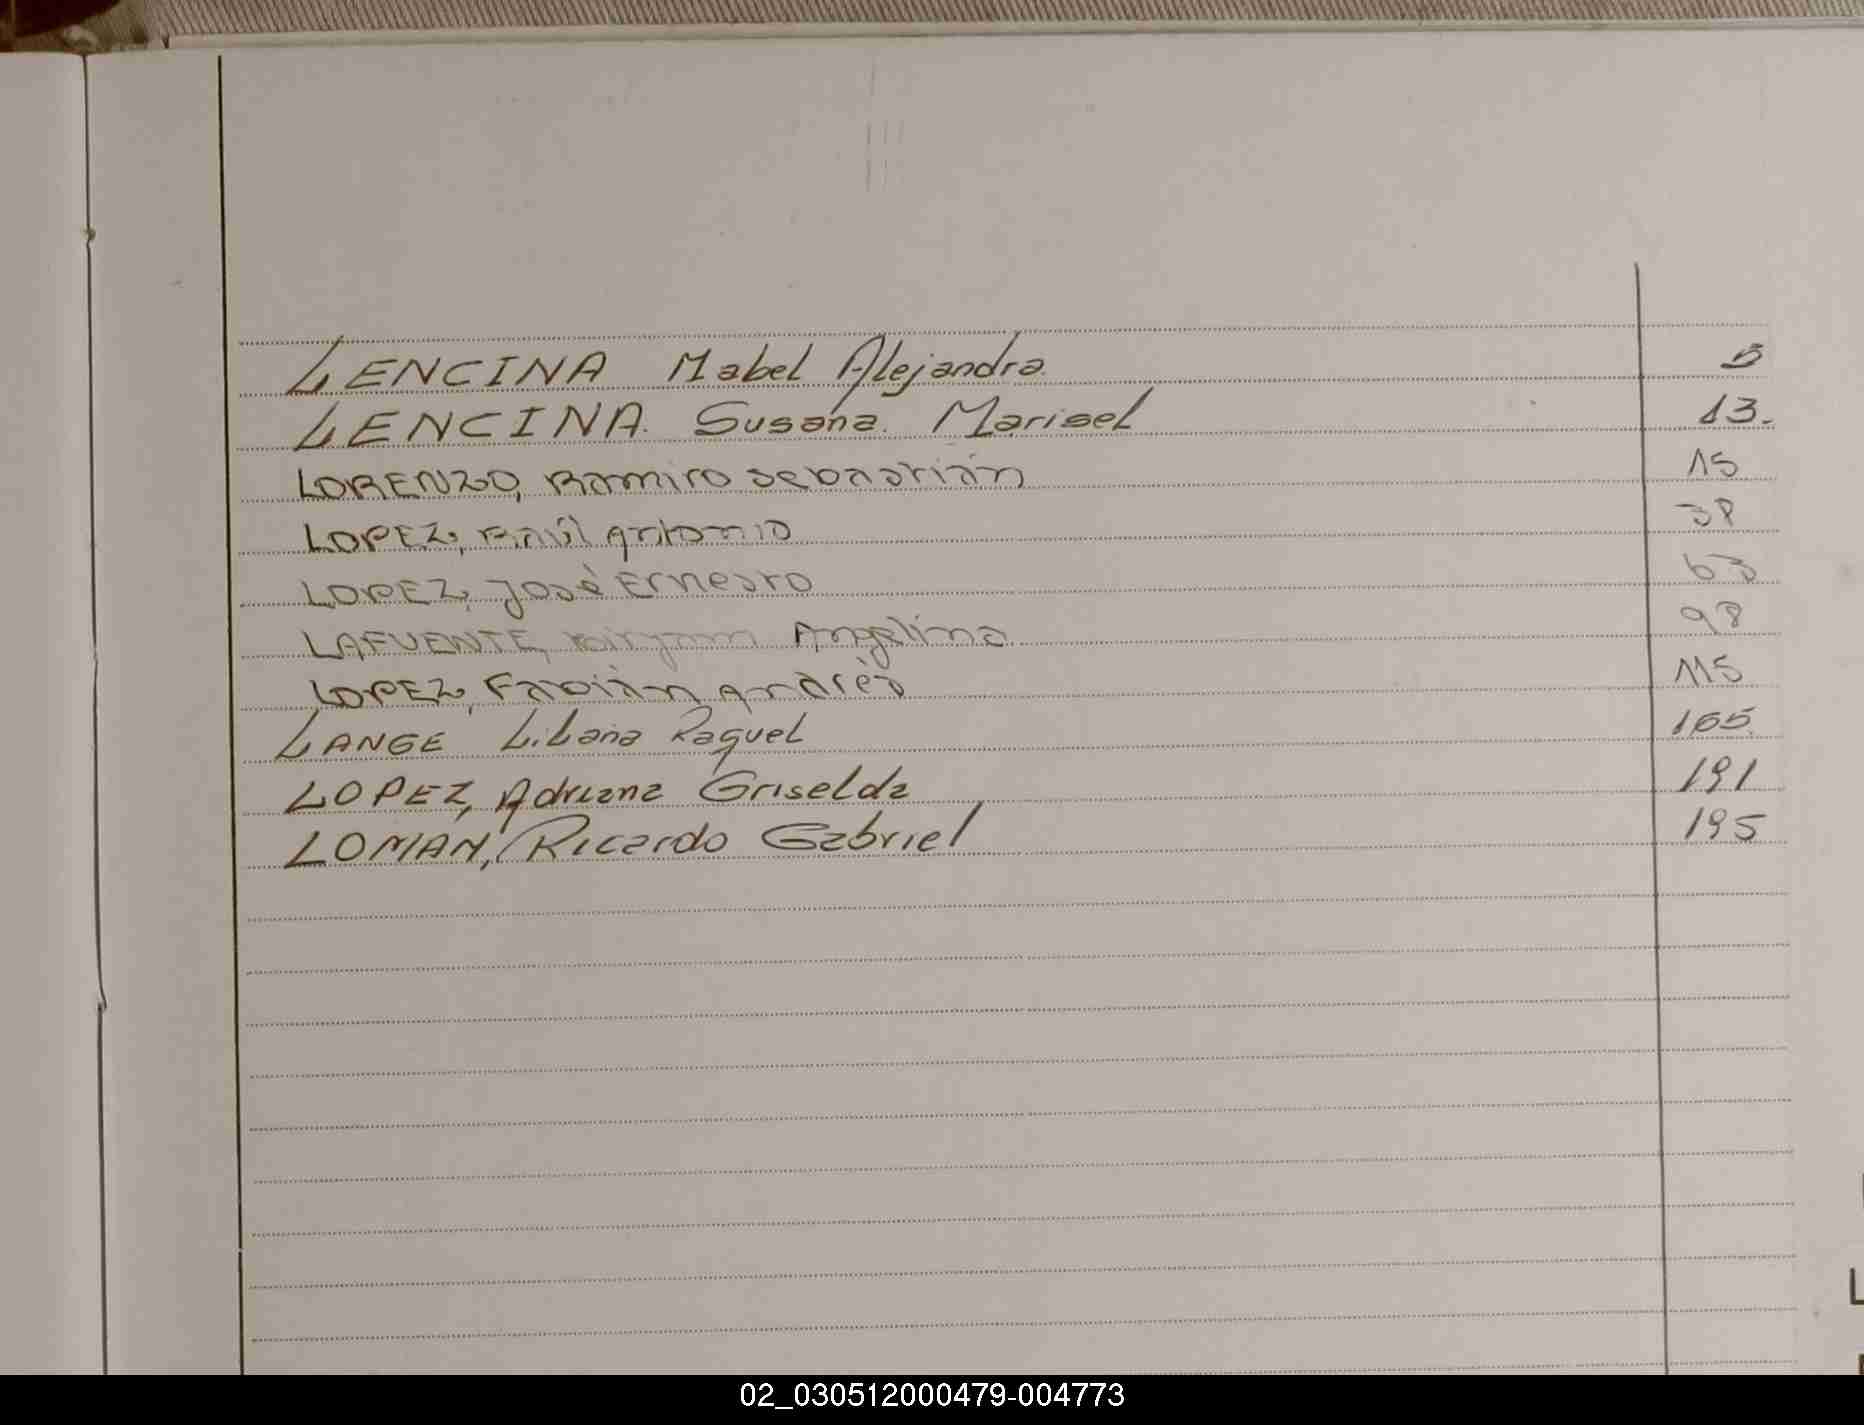 LENCINA Mabel Alejandra. 5
LENCINA. Susana. Marisel 13.
LORENZO, Ramiro Sebastián 15
LOPEZ, Raúl Antonio 38
LOPEZ, José Ernesto 63
LAFUENTE, Miryam Angelina 98
LOPEZ, Fabián Andrés 115
LANGE Liliana Raquel 165.
LOPEZ, Adriana Griselda 191
LOMAN, Ricardo Gabriel 195
L
02_030512000479-004773